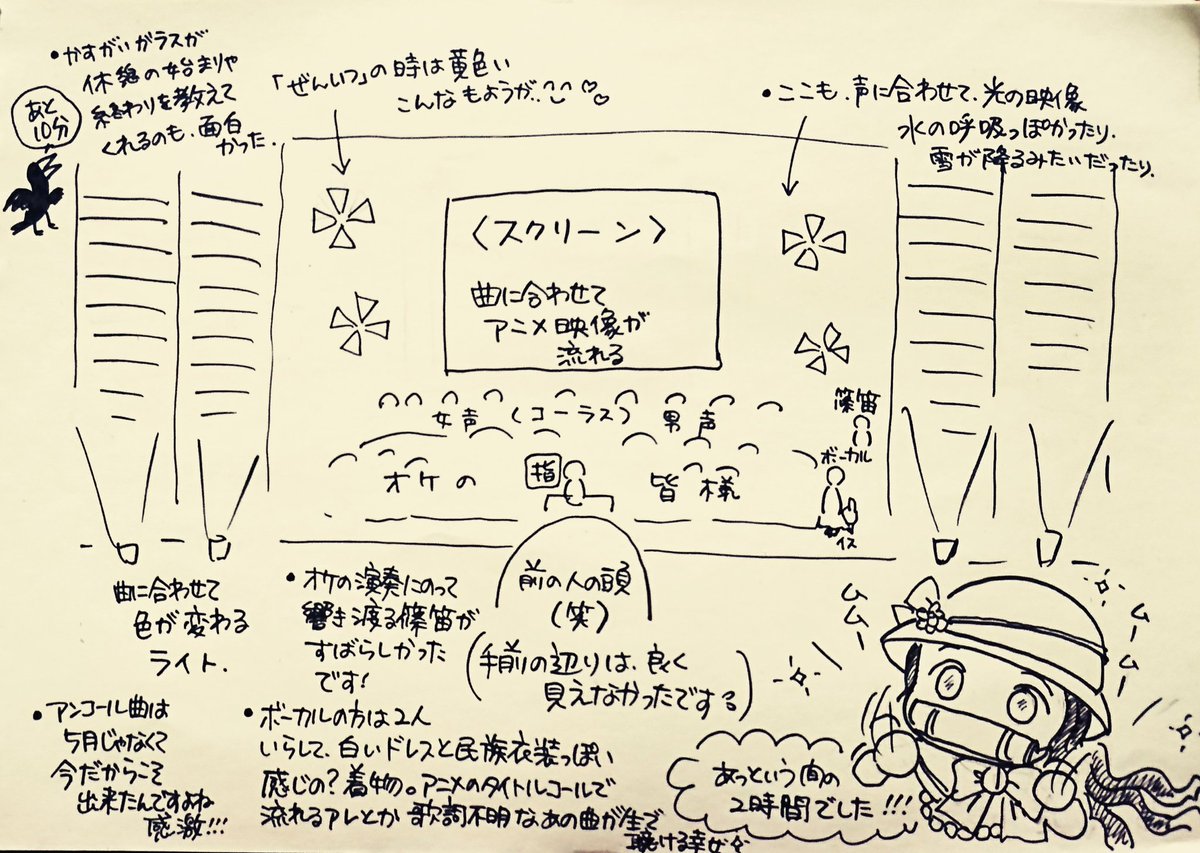 ・かすがいガラスが
休憩の始まりや
終わりを教えて
くれるのも、面白
かった.
あと
10分
「ぜんいつ」の時は黄色い
こんなもようが‥
・ここも、声に合わせて、光の映像
水の呼吸っぽかったり、
雪が降るみたいだったり、
〈スクリーン〉
曲に合わせて
アニメ映像が
流れる
女声(コーラス)男声
篠笛
ボーカル
オケの
指
皆様
イス
曲に合わせて
色が変わる
ライト.
・オケの演奏にのって
響き渡る篠笛が
すばらしかった
です!
前の人の頭
(笑)
(手前の辺りは、良く
見えなかったでする)
ムムムー
ムームー
・アンコール曲は
5月じゃなくて
今だからこそ
出来たんですよね
感激!!!
・ボーカルの方は2人
いらして、白いドレスと民族衣装っぽい
感じの?着物。アニメのタイトルコールで
流れるアレとか歌詞不明なあの曲が生で
聴ける幸せ
あっという間の
2時間でした!!!